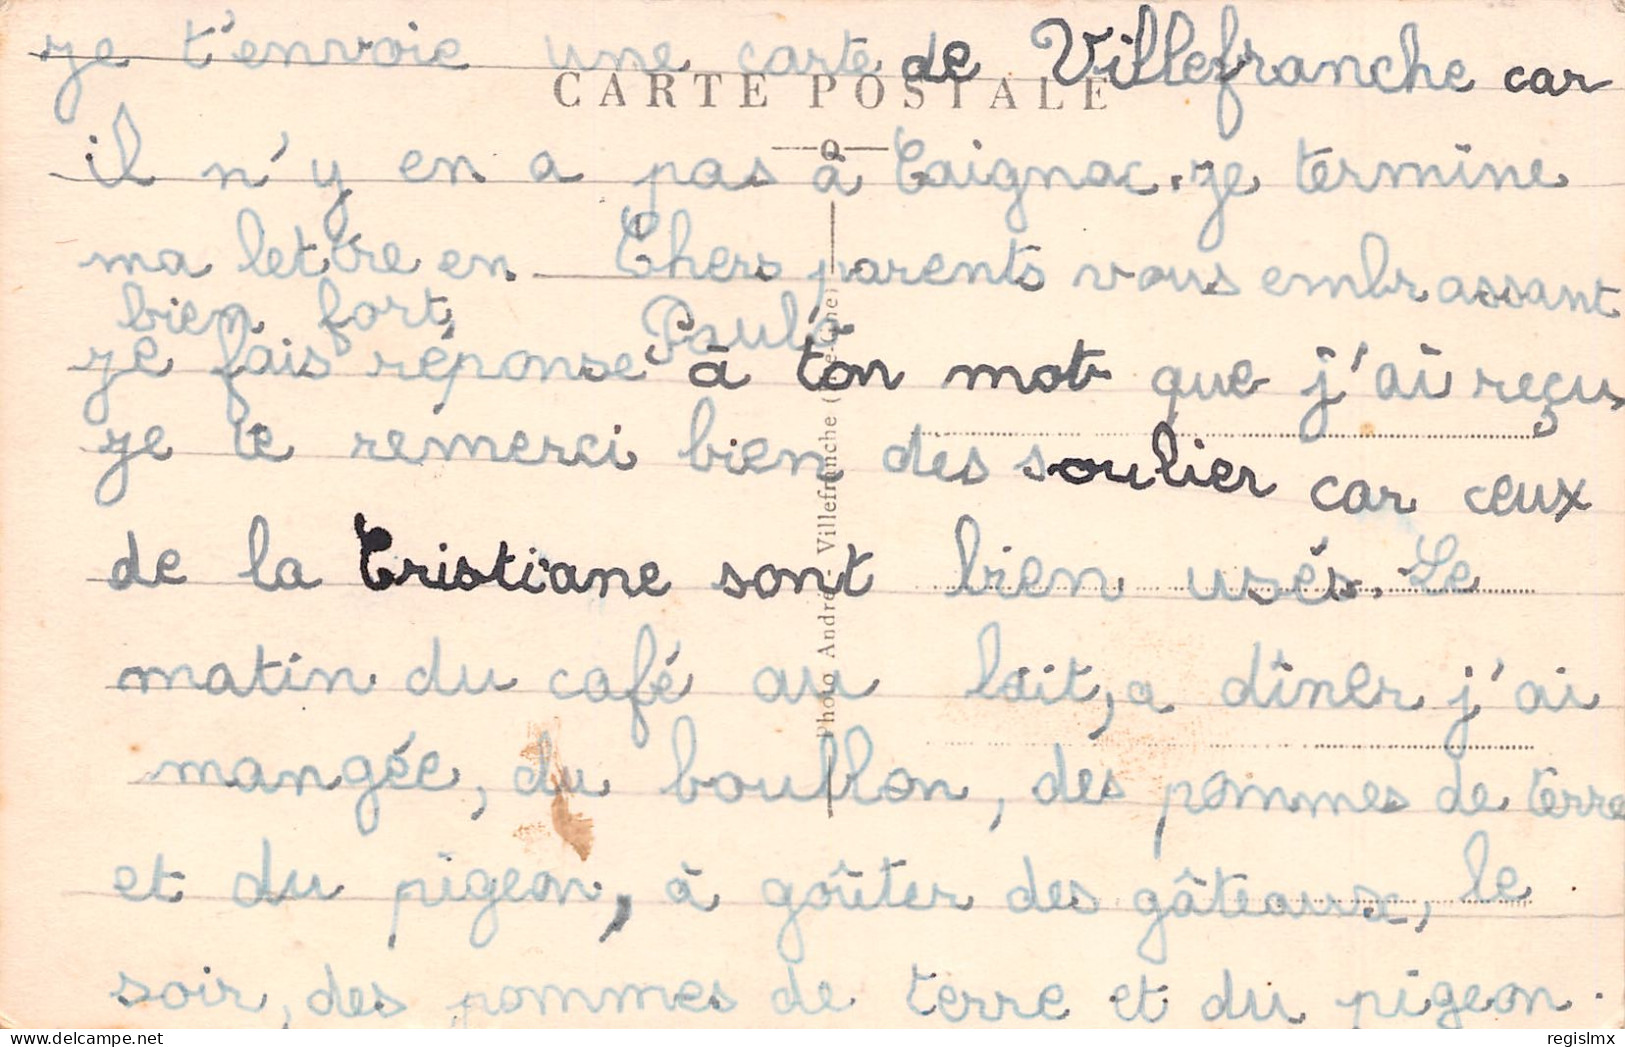 je t'envoie une carte de Villefranche car
CARTE POSTALE
il n'y en a pas à Caignac. je termine
ma lettre en Chers parents vous embrassant
bien fort, Paule
je fais réponse à ton mot que j'ai reçus
je te remerci bien des soulier car ceux
de la Cristiane sont bien usés. Le
matin du café au lait, a dîner j'ai
mangée, du boullon, des pommes de terre
et du pigeon, à goûter des gâteaux, le
soir, des pommes de terre et du pigeon.
Photo André - Villefranche (
regislmx